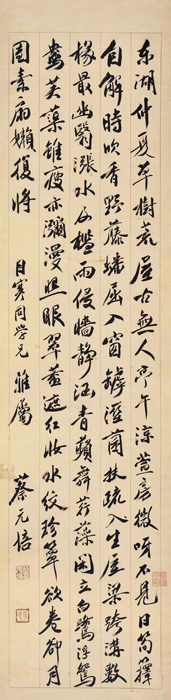 東湖仲夏草樹荒屋古無人亭午涼萱房微呀不見日筍籜
自解時吹香野藤蟠屈入窗罅溼菌扶疏入生屋梁跨溝數
椽最幽翳漲水及檻雨侵牆靜涵青蘋舞荇藻閒立白鷺浮鴛
鴦芙蕖雖瘦亦瀰漫照眼翠蓋遮紅妝水紋珍簟欲卷卻月
團素扇嬾復將 目寒同學兄雅屬 蔡元培